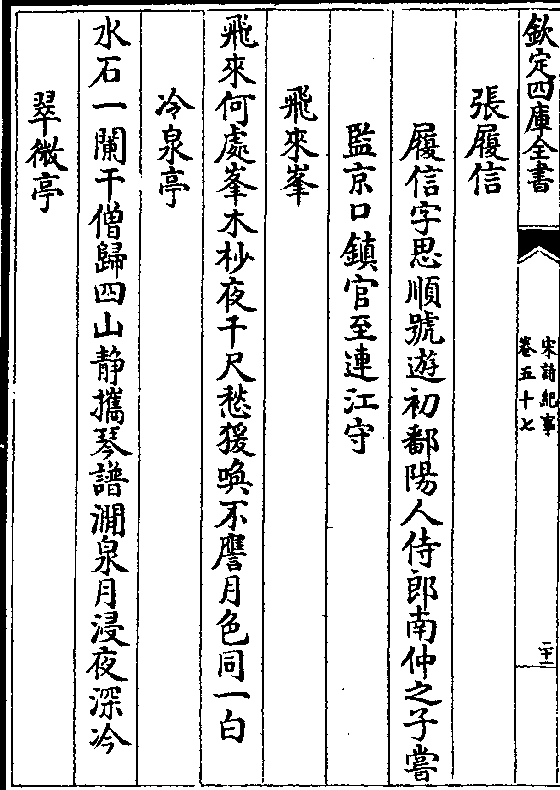 欽定四庫全書
宋詩紀事
卷五十七
二十一
張履信
履信字思順號遊初鄱陽人侍郎南仲之子嘗
監京口鎮官至連江守
飛來峯
飛來何處峯木杪夜千尺愁猨喚不譍月色同一白
冷泉亭
水石一闌干僧歸四山静攜琴譜澗泉月浸夜深冷
翠微亭